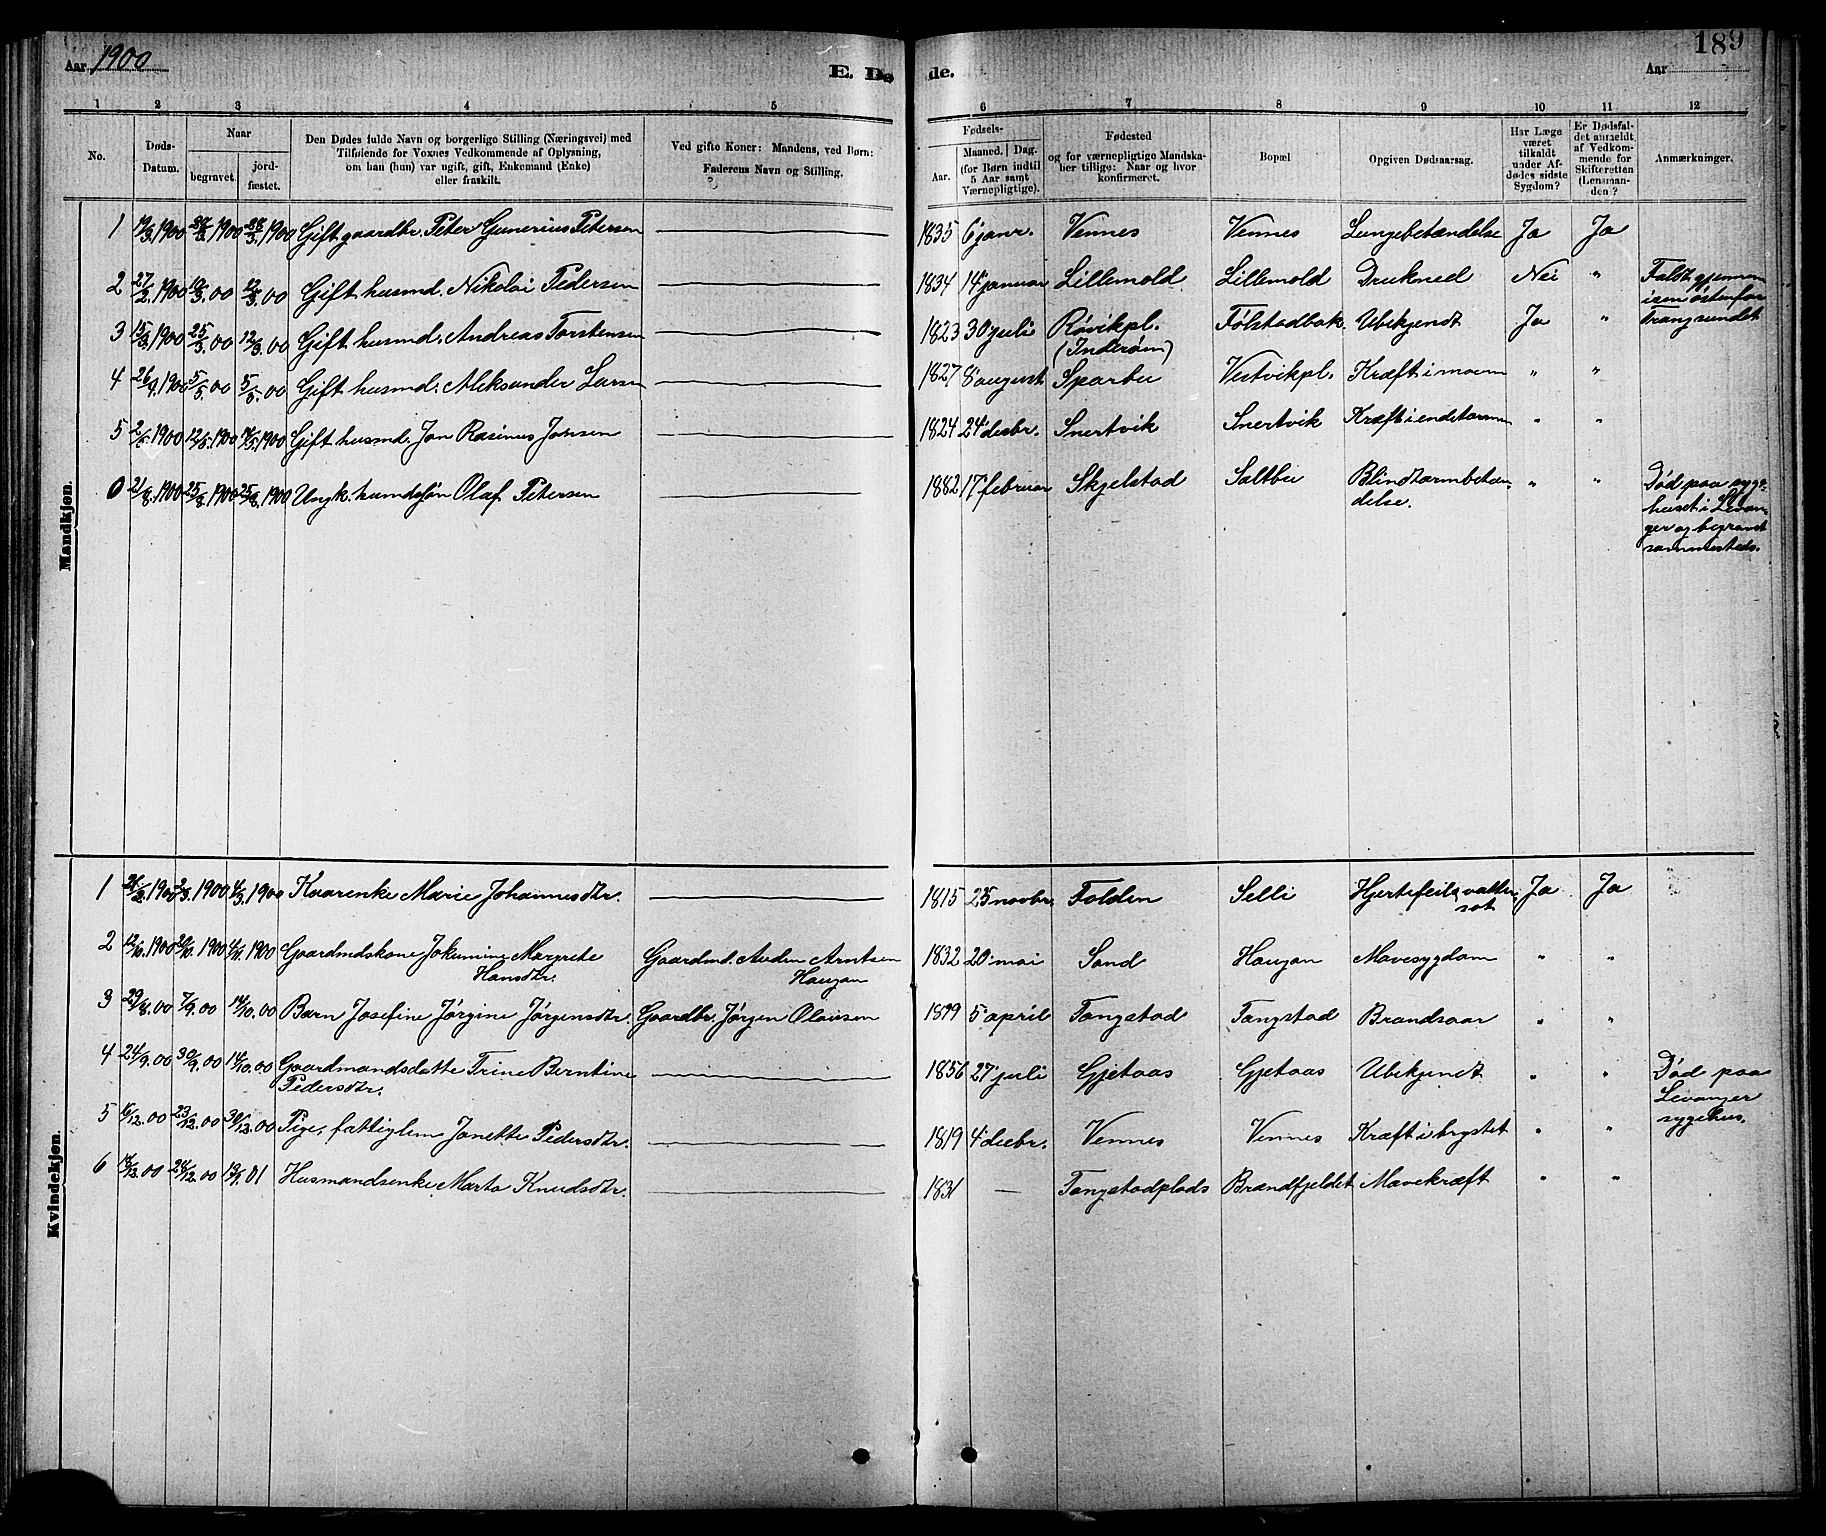 Aar 1900
E. Dø
de.
Aar
189
1 2 3 4 5 6 7 8 9 10 11 12
No.
Døds-
Datum.
Naar
begravet.
jord-
fæstet.
Den Dødes fulde Navn og borgerlige Stilling (Næringsvei) med
Tilføiende for Voxnes Vedkommende af Oplysning,
om han (hun) var ugift, gift, Enkemand (Enke)
eller fraskilt.
Ved gifte Koner: Mandens, ved Børn:
Faderens Navn og Stilling.
Fødsels-
Aar.
Maaned. Dag.
(for Børn indtil
5 Aar samt
Værnepligtige).
Fødested
og for værnepligtige Mandska-
ber tillige: Naar og hvor
konfirmeret.
Bopæl
Opgiven Dødsaarsag.
Har Læge
været
tilkaldt
under Af-
dødes sidste
Sygdom?
Er Dødsfal-
det anmeldt
af Vedkom-
mende for
Skifteretten
(Lensman-
den?
Anmærkninger.
Mandkjøn.
1 19/3.1900 1900 1900 Gift gaardbr. Peter Gunerius Petersen 1835 6 janr. Vennes Vennes Lungebetændelse Ja Ja
2 27/2.1900 .00 .00 Gift husmd. Nikolai Pedersen 1834 14 januar Lillemold Lillemold Drukned Nei " Faldt gjennem
isen østenfor
Trangsundet
3 15/3.1900 25/3.00 12/3.00 Gift husmd. Andreas Torstensen 1823 30 juli Røvikpl.
(Inderøen) Følstadbak. Ubekjendt Ja "
4 1900 5/5.00 5/5.00 Gift husmd. Aleksander Larsen 1827 8 august Sparbu Vestvikpl. Kræft i maven " "
5 1900 12/5.1900 1900 Gift husmd. Jon Rasinus Jonsen 1824 24 decbr. Snertvik Snertvik Kræft i endetarmen " "
21/8.1900 25/8.1900 25/8.1900 Ungk. husmdssøn Olaf Petersen 1882 17 februar Skjelstad Saltbu Blindtarmbetæn-
delse. " " Død paa syge-
huset i Levan-
ger og begravet
sammesteds.
Kvindekjøn.
1 1900 1900 1900 Kaarenke Marie Johannesdtr. 1815 25 novbr. Folden Selli Hjertefeil, vatter-
sot Ja Ja
2 12/10.1900 20/10.1900 4/11.1900 Gaardmdskone Jokumine Margrete
Hansdtr. Gaardmd. Auden Arntsen
Haugan 1832 20 mai Sand Haugan Mavesygdom " "
3 29/8.00 7/9.00 14/10.00 Barn Josefine Jørgine Jørgensdtr. Gaardbr. Jørgen Olausen 1899 5 april Tangstad Tangstad Brandsaar " "
4 24/9.00 30/9.00 14/10.00 Gaardmandsdatte Trine Berntine
Pedersdtr. 1856 27 juli Gjetaas Gjetaas Ubekjendt " " Død paa
Levanger
sygehus.
5 16/12.00 23/12.00 30/12.00 Pige, fattiglem Janette Pedersdtr. 1819 4 decbr. Vennes Vennes Kræft i brystet " "
6 18/12.00 28/12.00 13/1.01 Husmandsenke Marta Knudsdtr. 1831 — Tangstadplads Brandfjeldet Mavekræft " "